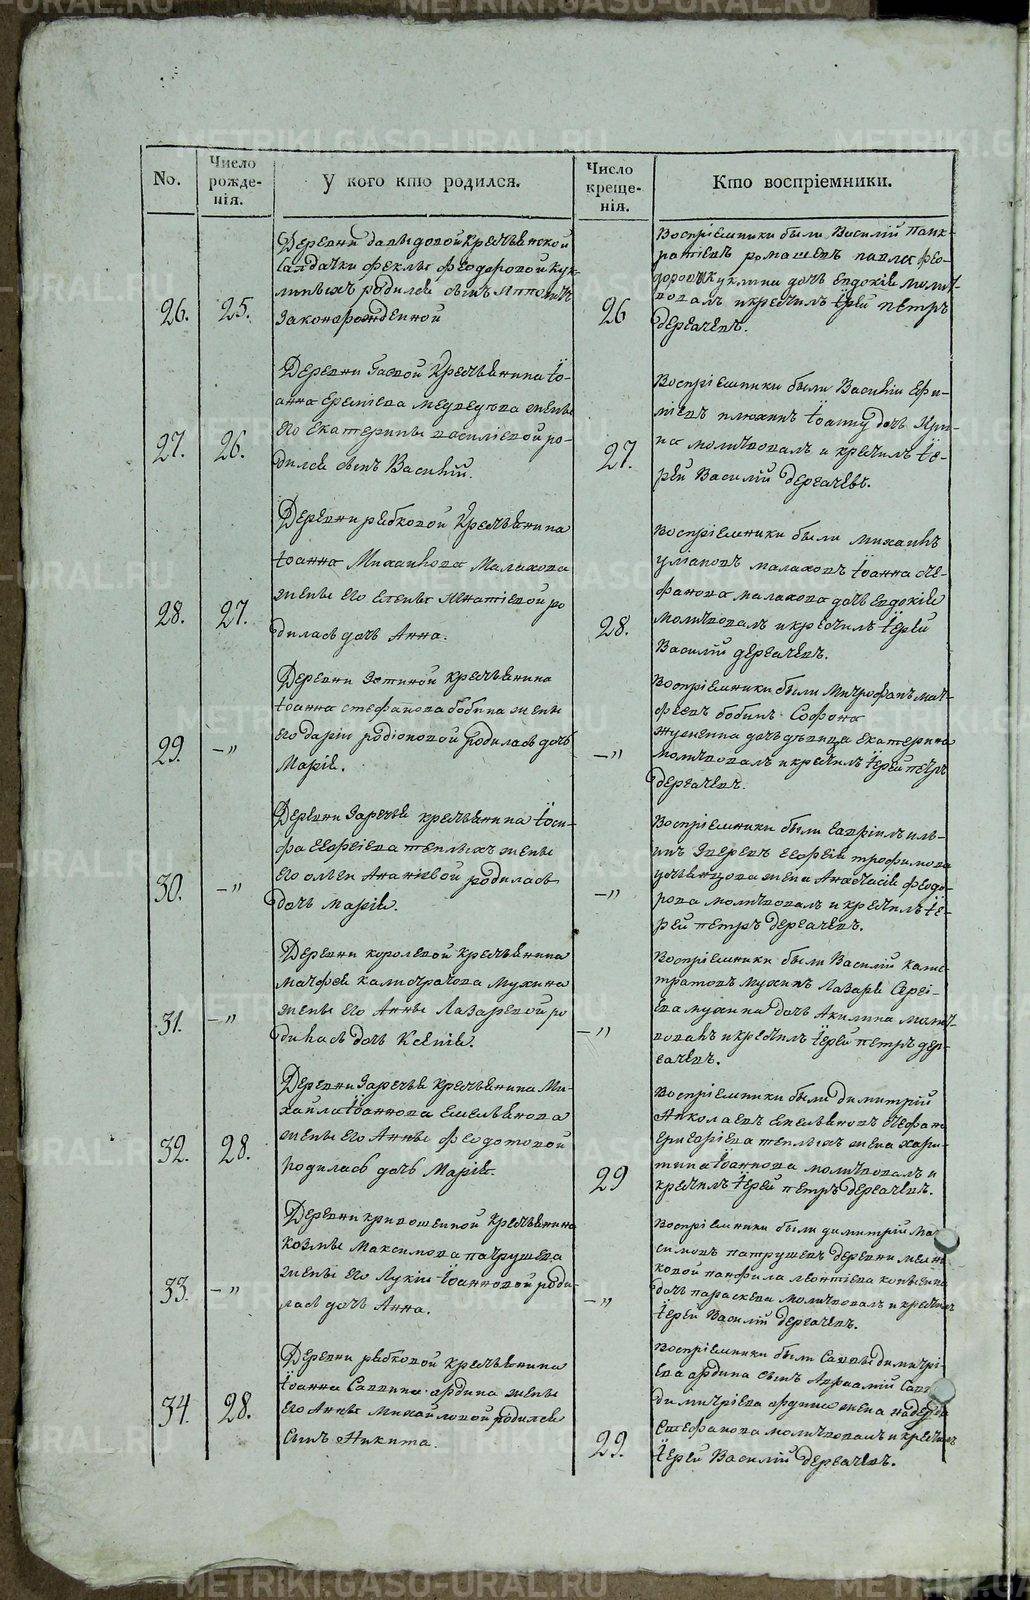 No.
Число рожде-нія.
У кого кто родился.
Число креще-нія.
Кто воспріемники.
26.
25.
Деревни давыдовой Крестьянской
Салдатки феклы феодоровой кук-
линыхъ родился сынъ Ипполитъ
Законорожденной
26
Воспріемники были Василій Панк-
ратіевъ ромашевъ павла фео-
дорова Куклина дочь евдокія молит-
вовалъ и крестилъ Іерей петръ
дергачевъ.
27.
26.
Деревни Гаевой Крестьянина Іо-
анна Еремѣева медведева жены
его Екатерины василіевой ро-
дился сынъ Василій.
27.
Воспріемники были Василій Ефи-
міевъ Іоанну дочь Ири-
на молитвовалъ и крестилъ Іе-
рей Василій дергачевъ.
28.
27.
Деревни рыбковой Крестьянина
Іоанна Михайлова Малахова
жены его Елены Игнатіевой ро
дилась дочь Анна.
28.
Воспріемники были михаилъ
малаховъ Іоанна сте-
фанова малахова дочь евдокія
молитвовалъ и крестилъ Іерей
Василій дергачевъ.
29.
—"
Деревни Зотиной крестьянина
Іоанна стефанова бобина жены
его дарьи родіоновой родилась дочь
Марія.
—"
Воспріемники были Митрофанъ мат-
феевъ бобинъ Софона
дочь девица екатерина
молитвовалъ и крестилъ Іерей петръ
дергачевъ.
30.
—"
Деревни Заречья крестьянина Іоси-
фа Георгіева теплыхъ жены
его ольги Ананьевой родилась
дочь марія.
—"
Воспріемники были Гавріилъ иль-
инъ Зверевъ Георгія трофимова
жена Анастасія феодо-
рова молитвовалъ и крестилъ Іе-
рей петръ дергачевъ.
31.
—"
Деревни королевой крестьянина
матфея калистратова Мухина
жены его Анны Лазаревой ро
дилась дочь Ксенія.
—"
Воспріемники были Василій калис-
тратовъ мухинъ Лазаря Сергі-
ева мухина дочь Акилина молит-
вовалъ и крестилъ Іерей петръ дер-
гачевъ.
32.
28.
Деревни Заречья крестьянина Ми-
хайла Іоаннова емельянова
жены его Анны феодотовой
родилась дочь Марія.
29
Воспріемники были димитрій
Николаевъ Емельяновъ стефана
григоріева теплыхъ жена хари-
тина Іоаннова молитвовалъ и
крестилъ Іерей петръ дергачевъ.
33.
—"
Деревни кривошеиной Крестьянина
козмы Максимова патрушева
жены его Лукіи Іоанновой роди-
лась дочь Анна.
—"
Воспріемники были димитрій Мак
симовъ патрушевъ деревни
панфила леонтіева
дочь параскева молитвовалъ и крестилъ
Іерей Василій дергачевъ.
34.
28.
Деревни рыбковой крестьянина
Іоанна Саввина ордина жены
его Анны Михайловой родился
сынъ Никита.
29.
Воспріемники были Саввы димитрі-
ева ордина сынъ Авраамій
димитріева ордина жена надежда
Стефанова молитвовалъ и крестилъ
Іерей Василій дергачевъ.
METRIKI.GASO-URAL.RU